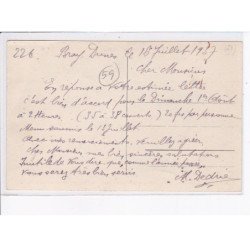 226 Bray Dunes le 18 Juillet 1937
59
Cher Monsieur
En réponse à votre estimée lettre
c'est bien d'accord pour le Dimanche 1er Août
à 2 Heures (35 à 38 couverts) 20 frs par personne
Menu du 18 Juillet
Avec mes remerciements, veuillez agréer
cher Monsieur mes bien sincères salutations
Inutile de vous dire que comme l'année
vous serez très bien servis